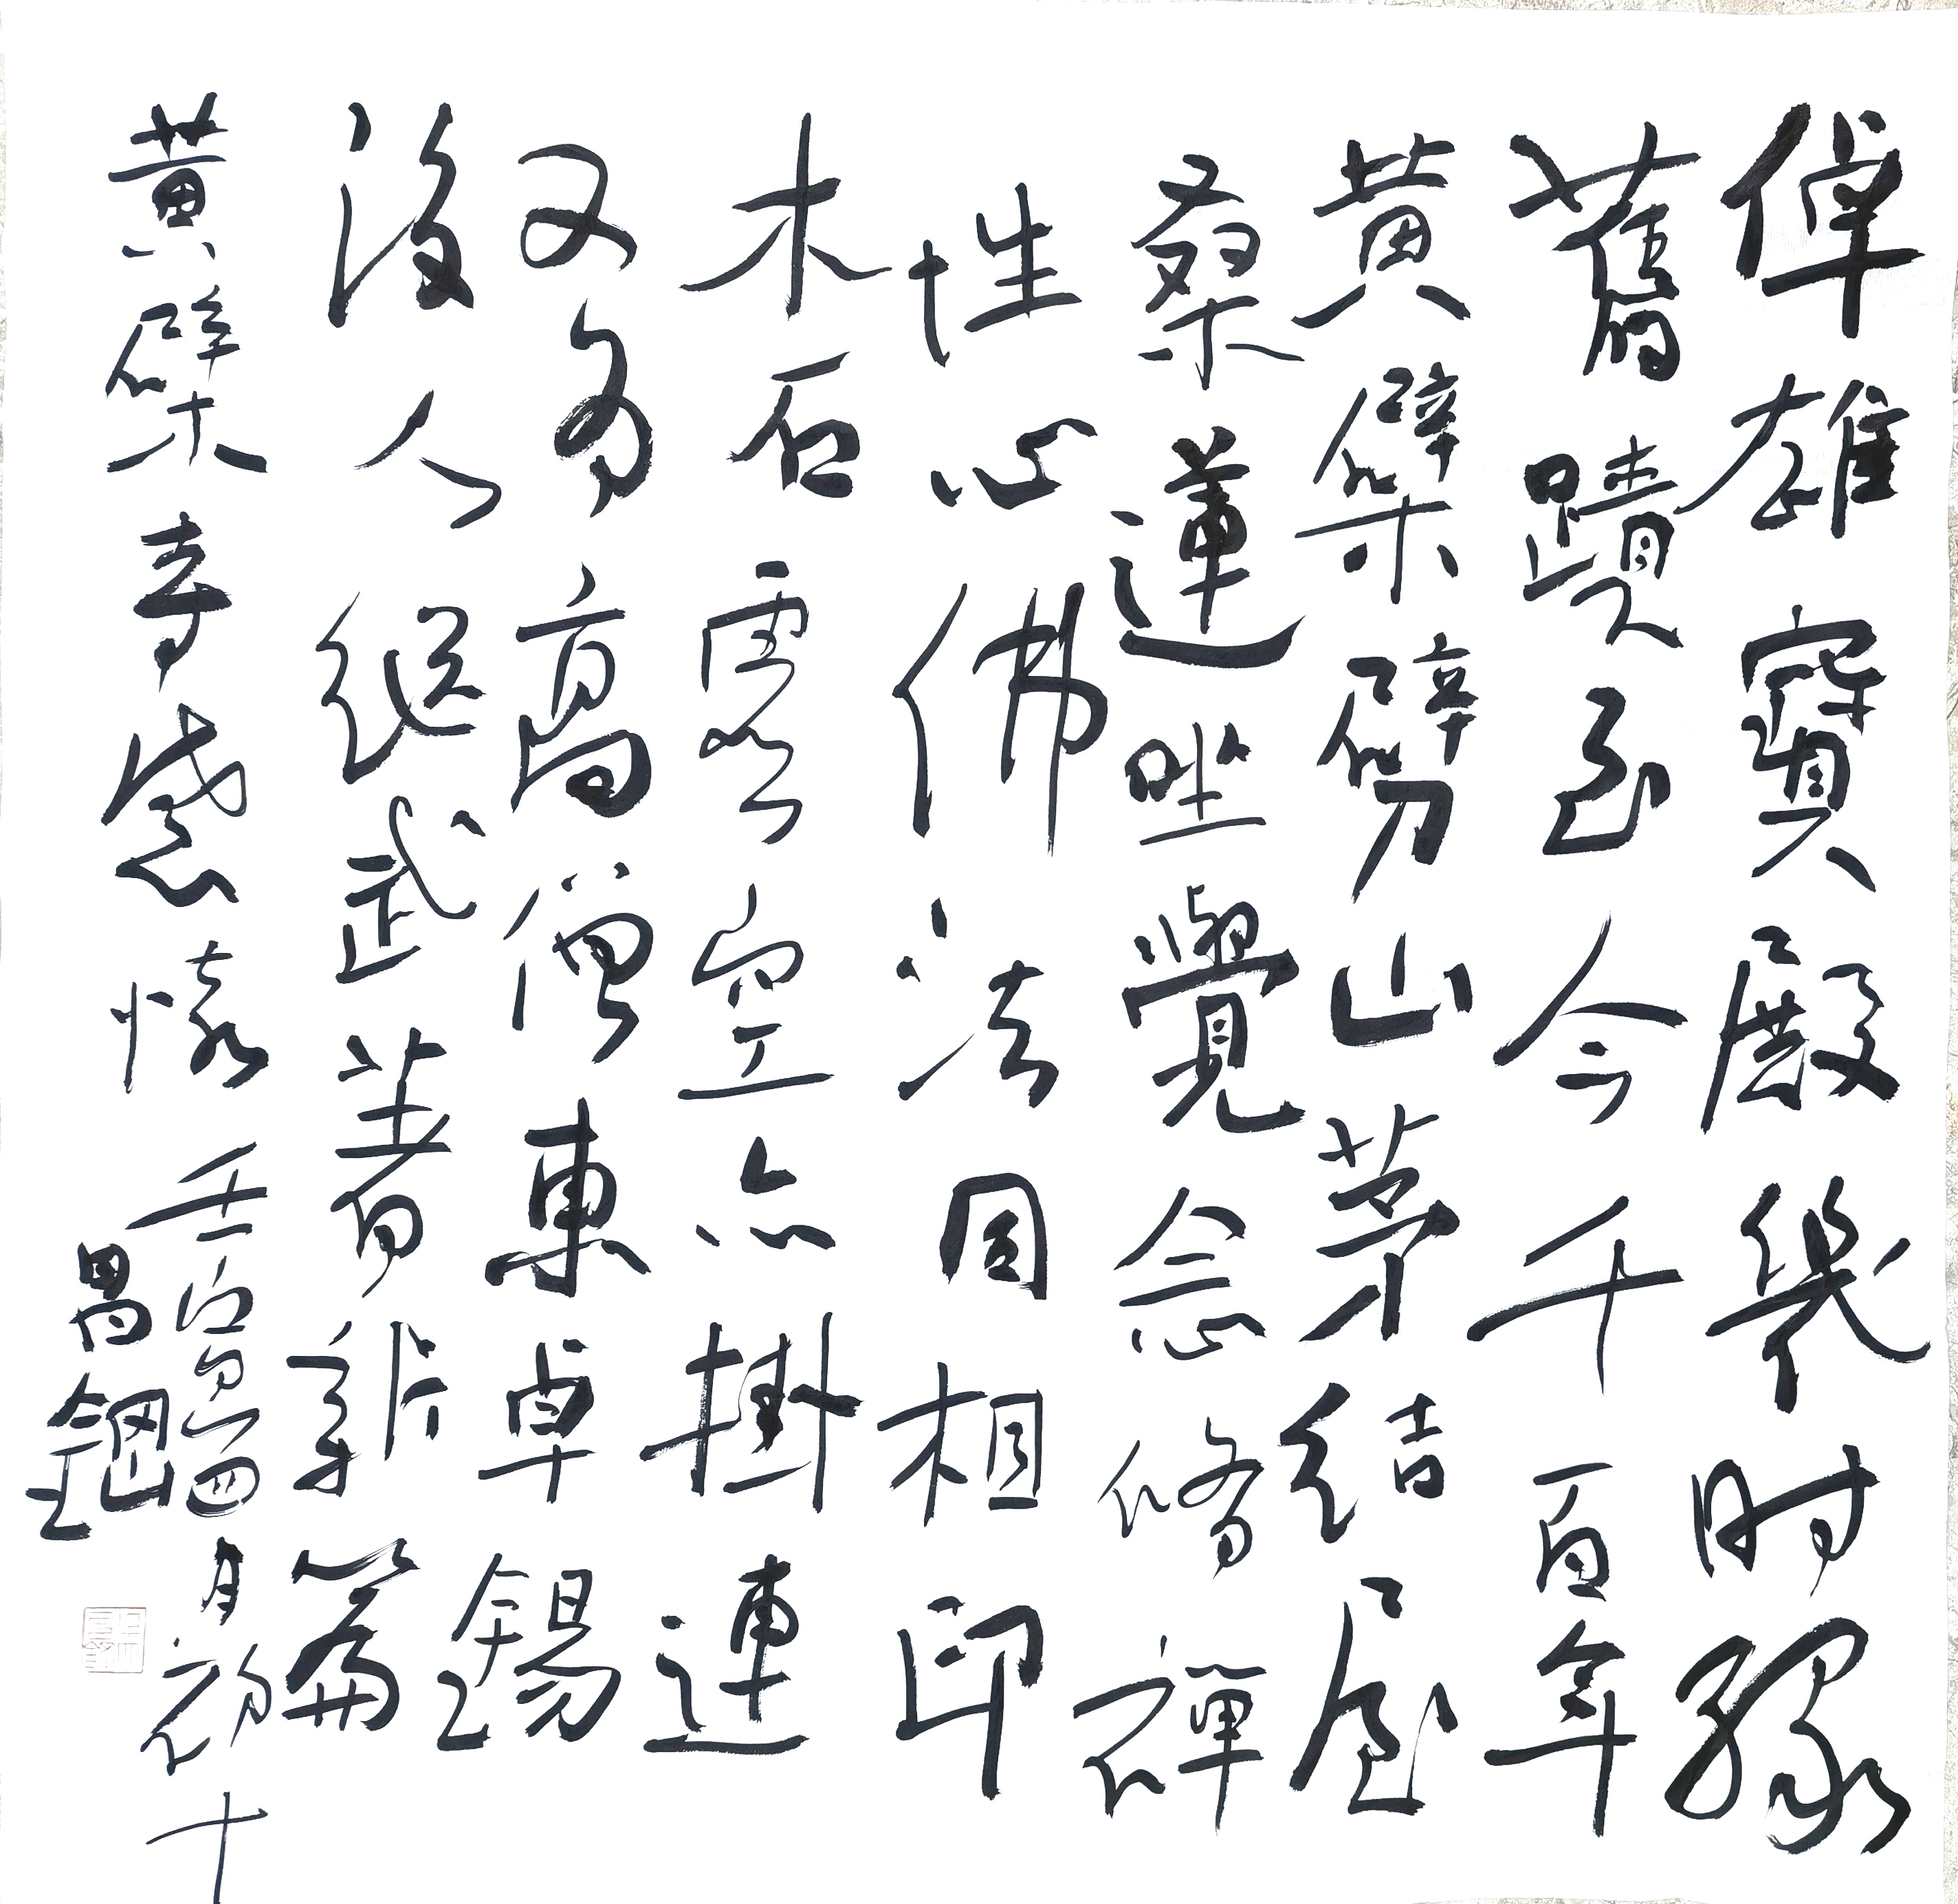 倬雄寶殿幾时緣
舊蹟至今千百年
黄檗劈山茅結屋
桑蓮坐覺念修禪
性心佛法同相印
木石空亦掛連
又高僧東卓錫
後人從武著新篇
黄檗寺感懷 壬寅四月初十
鋼